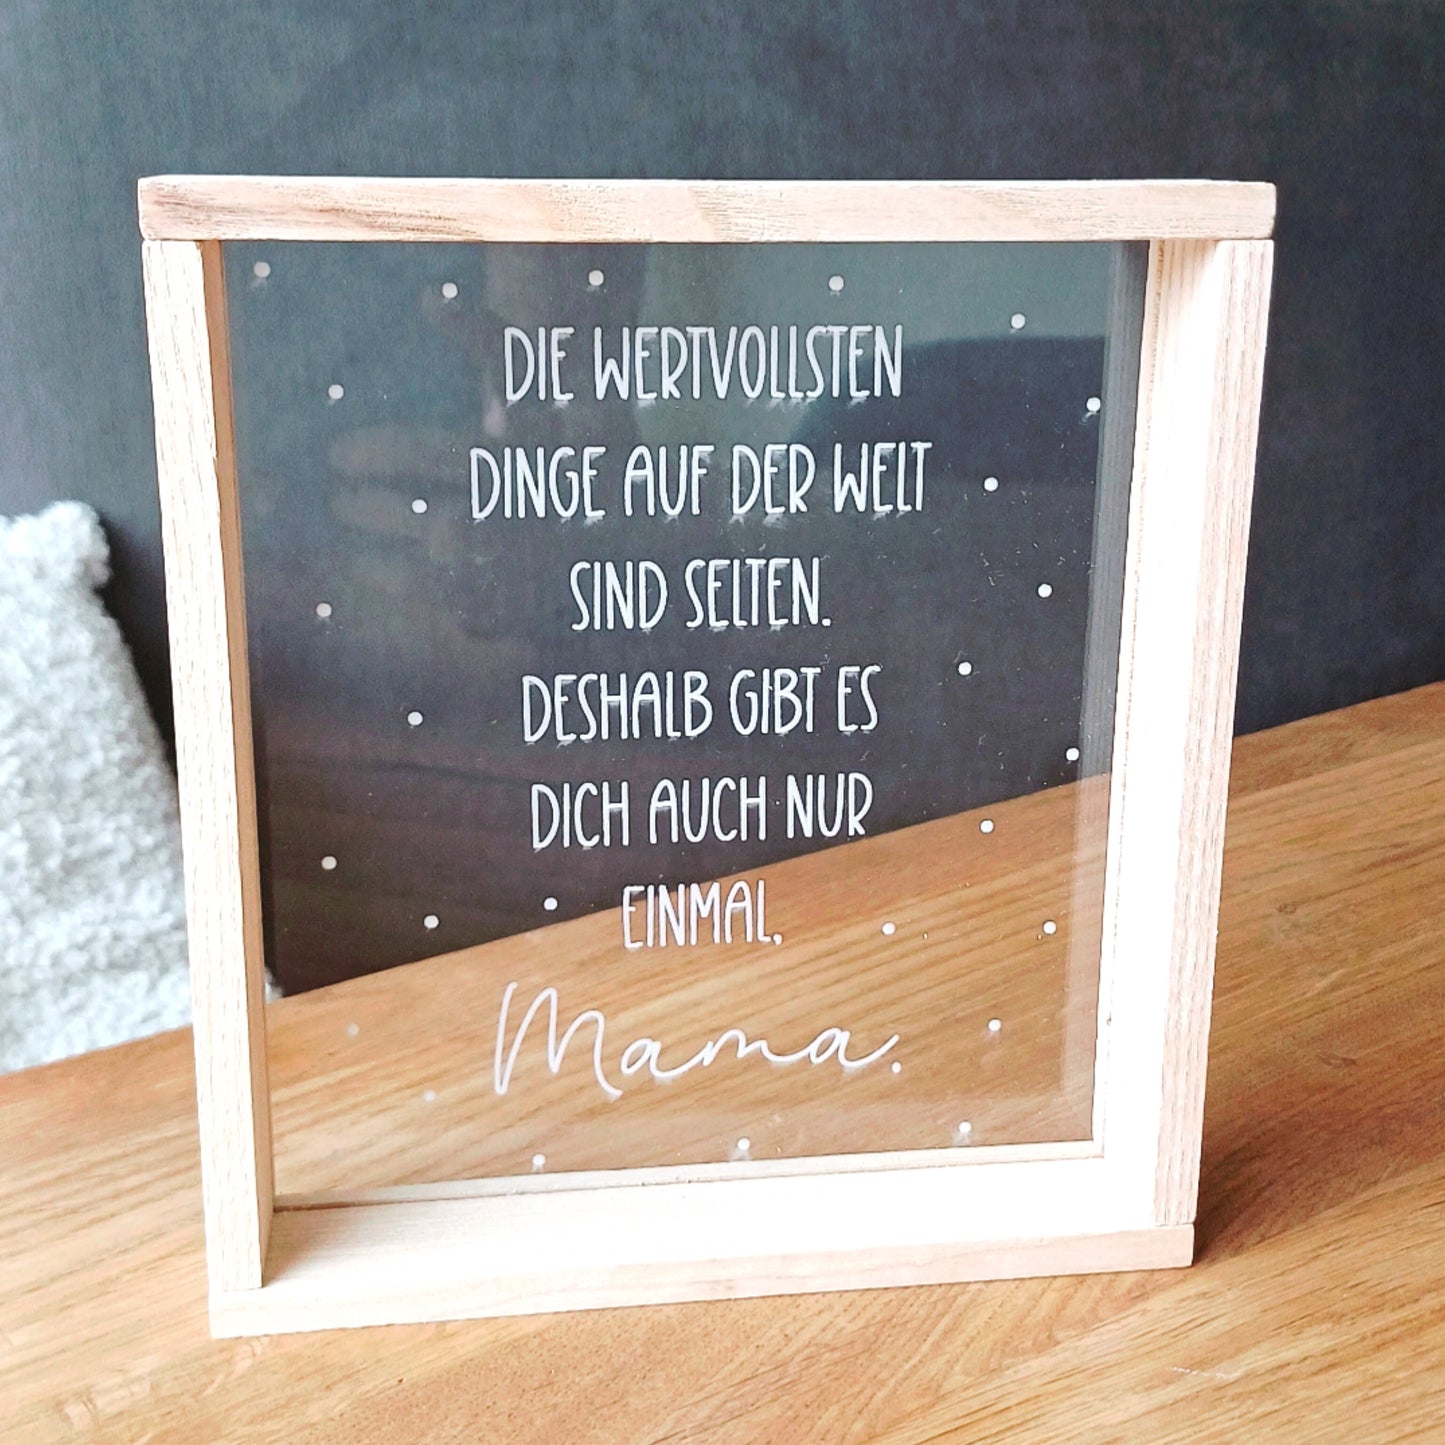 DIE WERTVOLLSTEN
DINGE AUF DER WELT
SIND SELTEN.
DESHALB GIBT ES
DICH AUCH NUR
EINMAL,
Mama.